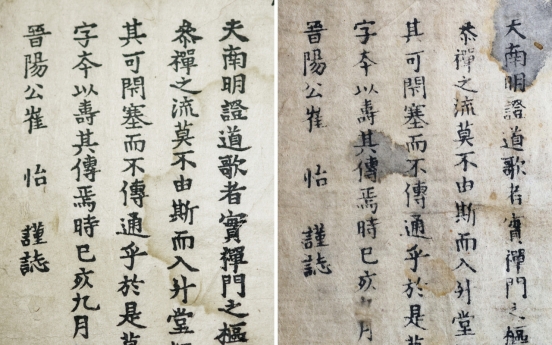 夫南明證道歌者實禪門之樞
叅禪之流莫不由斯而入升堂
其可閇塞而不傳通乎於是
字夲以壽其傳焉時己亥九月
晉陽公崔 怡 謹誌
夫南明證道歌者實禪門之樞
叅禪之流莫不由斯而入升堂
其可閇塞而不傳通乎於是
字夲以壽其傳焉時己亥九月
晉陽公崔 怡 謹誌